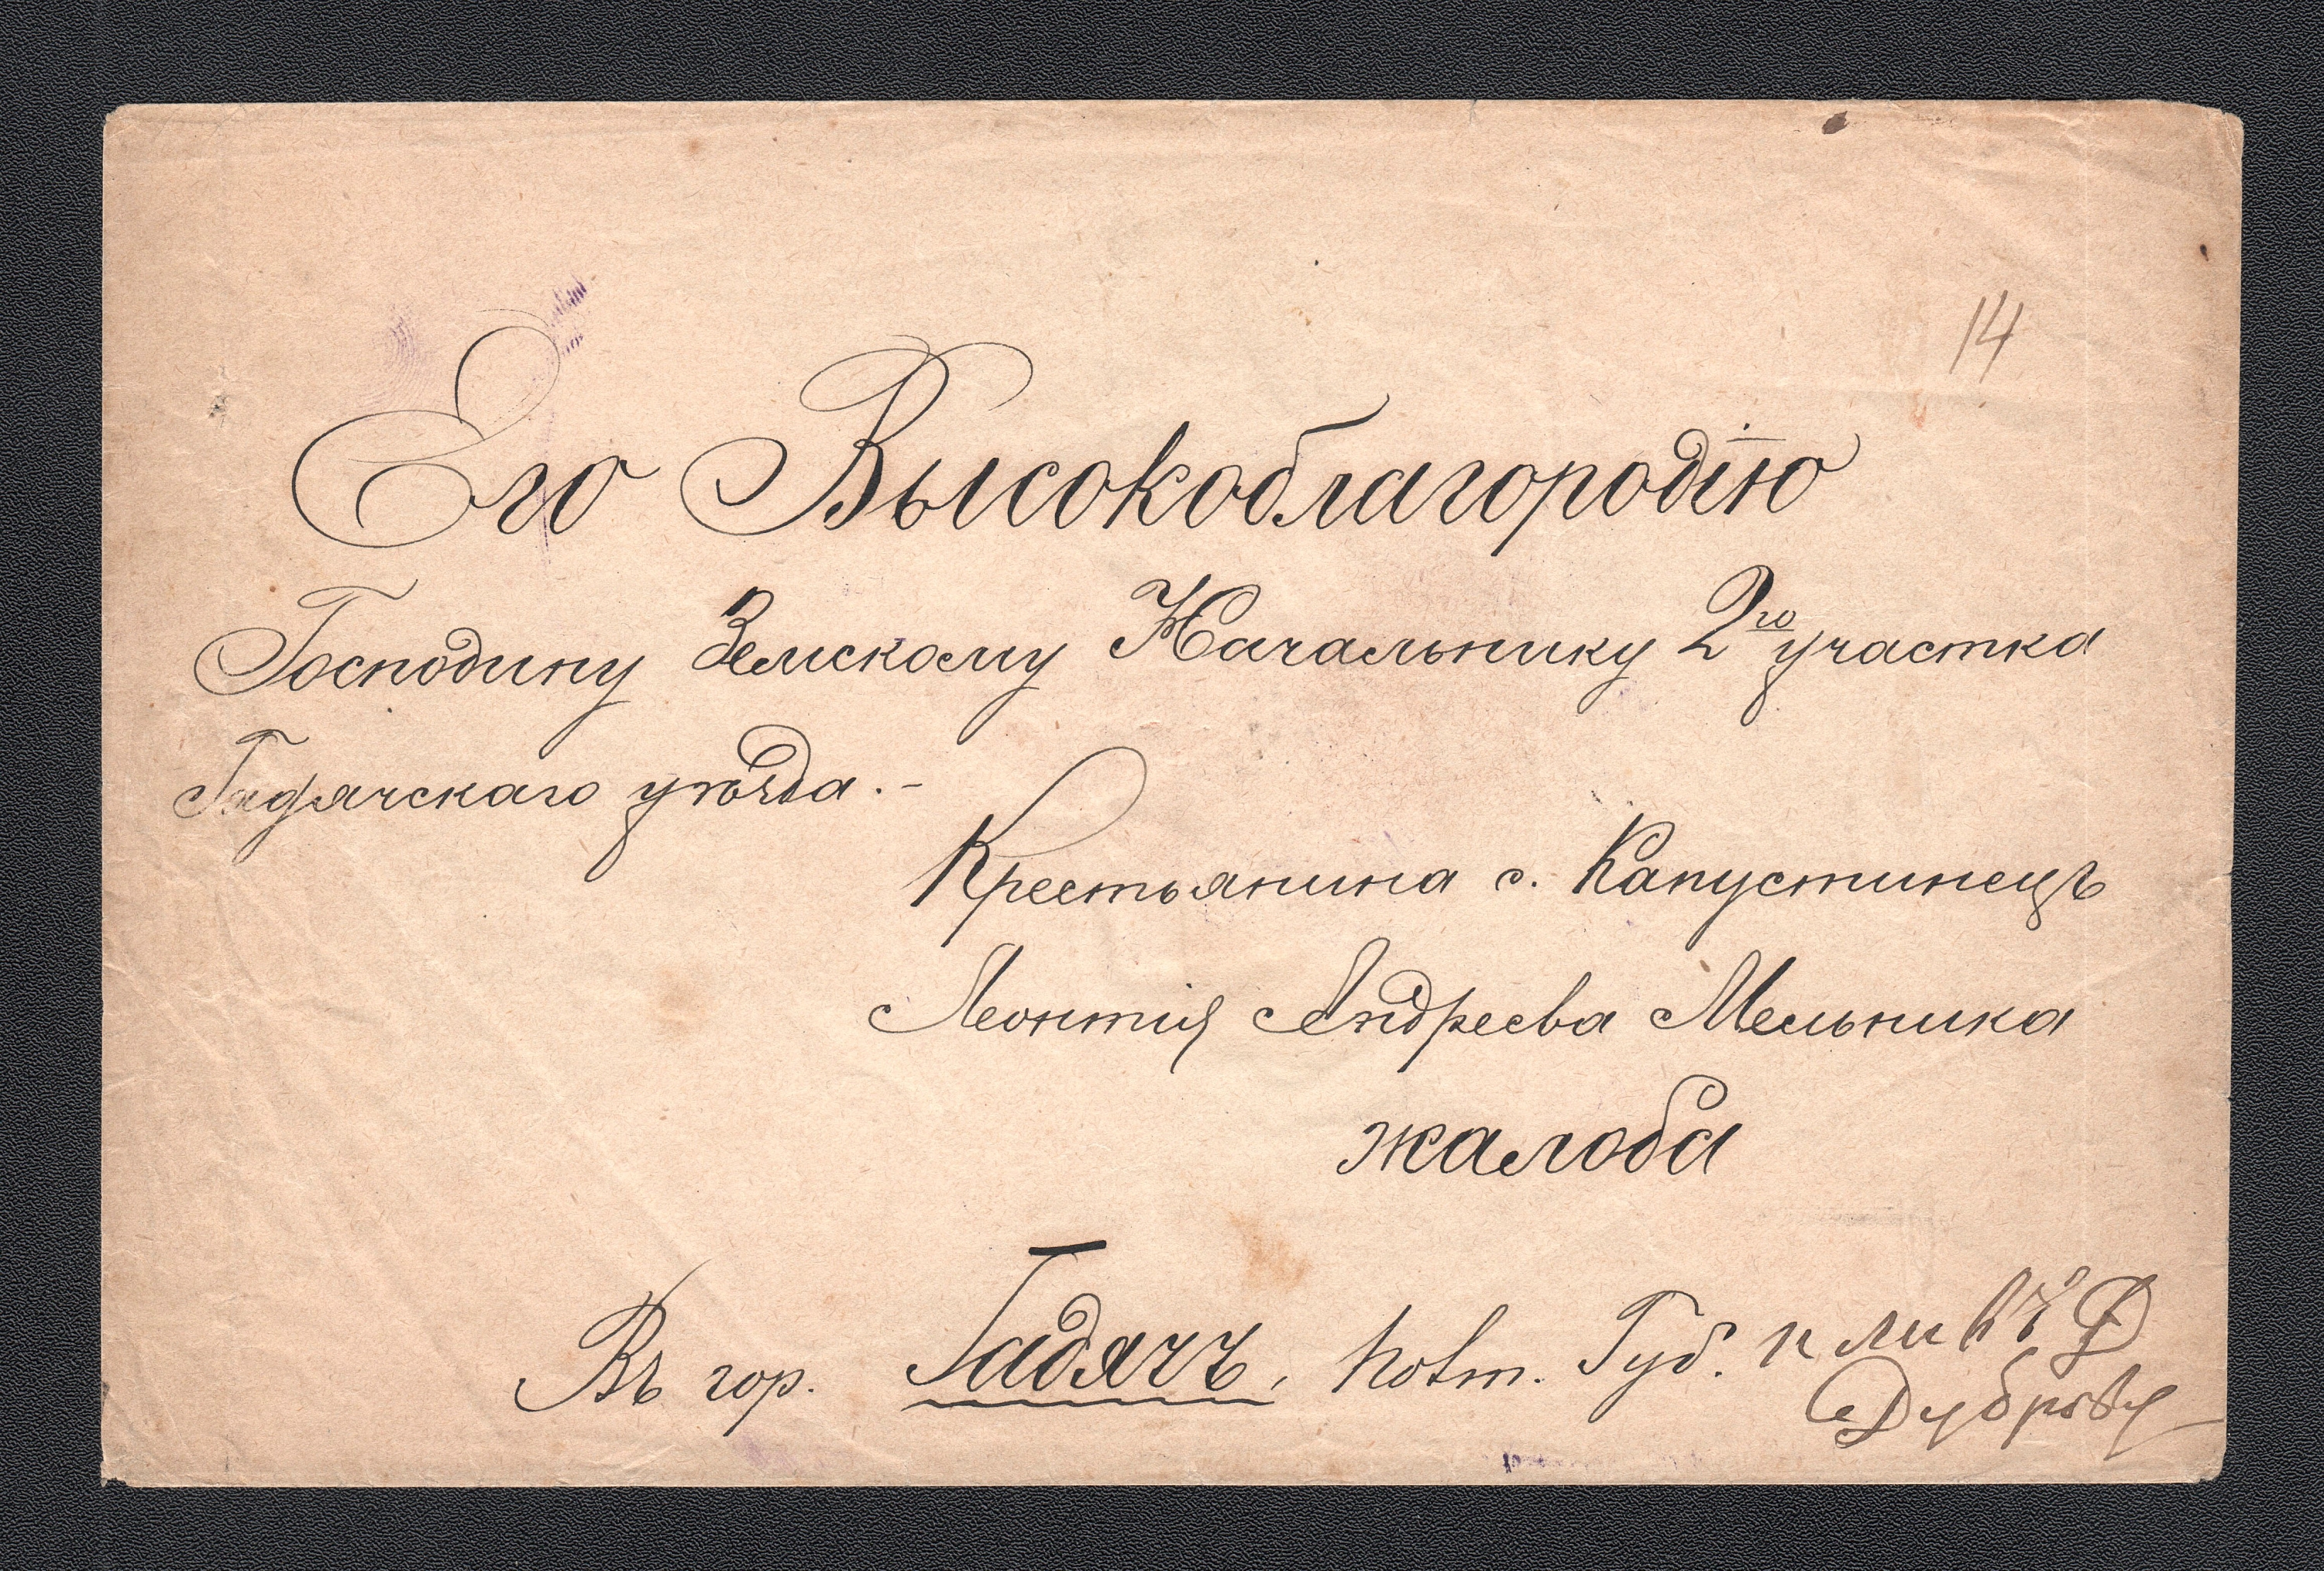 14
Его Высокоблагородію
Господину Земскому Начальнику 2го участка
Гадячскаго уѣзда.-
Крестьянина с. Капустинецъ
Леонтія Андреева Мельника
жалоба
Въ гор. Гадячъ, Полт. Губ.